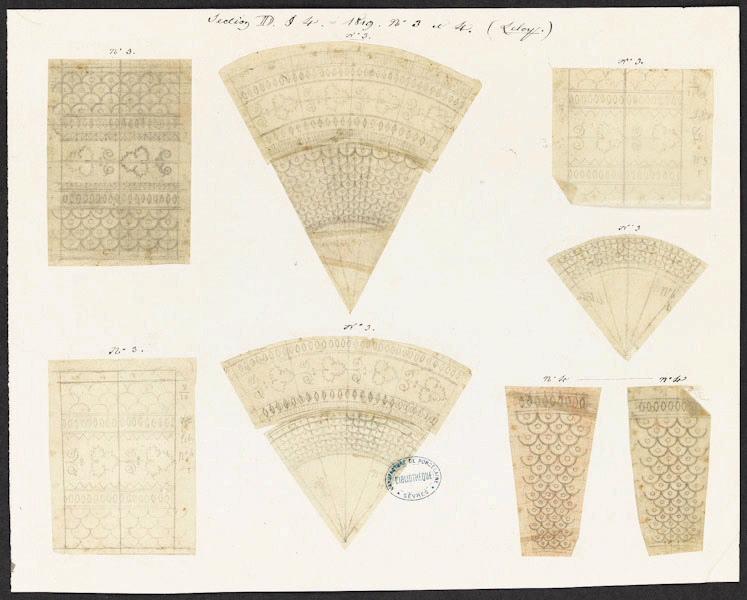 Section III. § 4. - 1819. Nº 3 et 4. (Leloy.)
Nº 3.
Nº 3.
Nº 3.
Nº 3.
Nº 3.
Nº 3.
Nº 4
Nº 4
MANUFACTURE DE PORCELAINE
BIBLIOTHÈQUE
SÈVRES